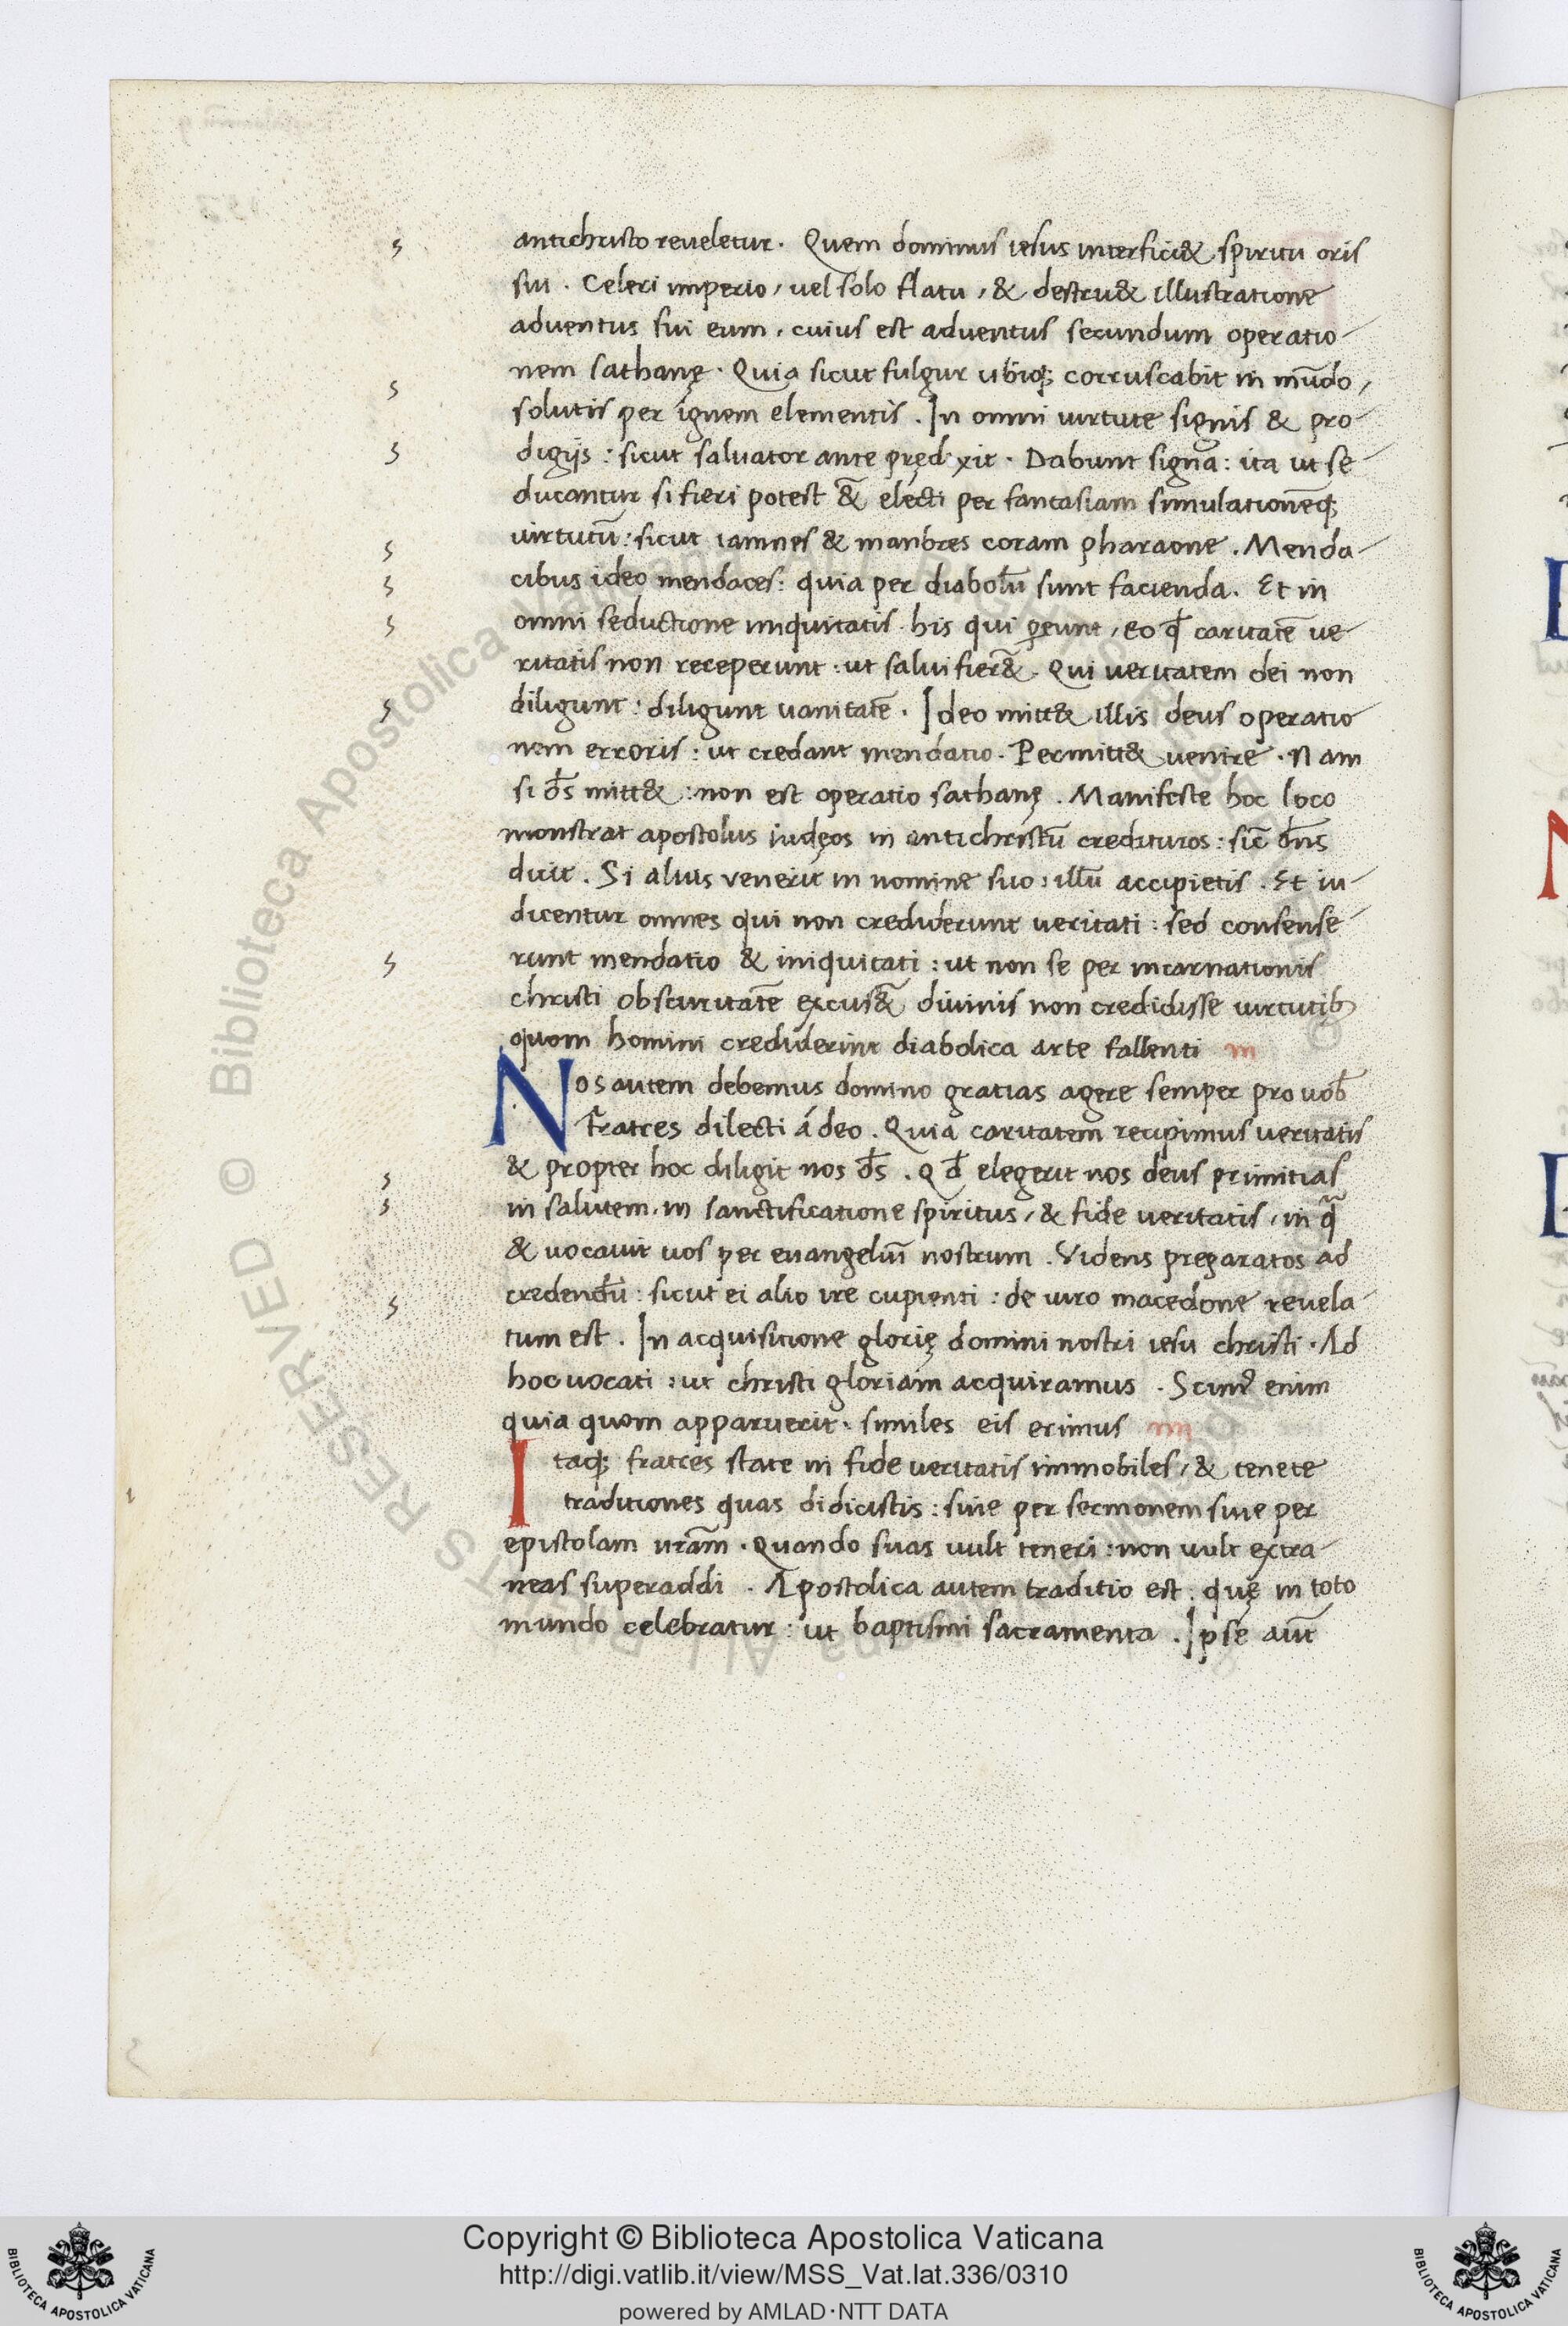 antichristo reueletur. Quem dominus iesus interfici& spiritu oris
sui. Celeri imperio, uel solo flatu, & destru& illustratione
aduentus sui eum, cuius est aduentus secundum operatio-
nem sathanę. Quia sicut fulgur ubiq; corruscabit in mūdo,
solutis per ignem elementis. In omni uirtute signis & pro-
digijs: sicut saluator ante prędixit. Dabunt signa: ita ut se-
ducantur si fieri potest &̄ electi per fantasiam simulationēq;
uirtutū: sicut iamnes & manbres coram pharaone. Menda-
cibus ideo mendaces: quia per diabolū sunt facienda. Et in
omni seductione iniquitatis his qui ꝑeunt, eo qđ caritatē ue-
ritatis non receperunt: ut salui fier&̄. Qui ueritatem dei non
diligunt: diligunt uanitatē. Ideo mitt& illis deus operatio-
nem erroris: ut credant mendatio. Permitt& uenire. Nam
si d̄s mitt&: non est operatio sathanę. Manifeste hoc loco
monstrat apostolus iudęos in antichristū credituros: sic̄ dn̄s
dicit. Si alius venerit in nomine suo: illū accipietis. Et iu-
dicentur omnes qui non crediderunt ueritati: sed consense-
runt mendatio & iniquitati: ut non se per incarnationis
christi obscuritatē excus&̄ diuinis non credidisse uirtutib;
quom homini crediderint diabolica arte fallenti m
Nos autem debemus domino gratias agere semper pro uob̄
Fratres dilecti á deo. Quia caritatem recipimus ueritatis
& propter hoc diligit nos d̄s. Qđ elegerit nos deus primitias
in salutem, in sanctificatione spiritus, & fide ueritatis, in qᷓ
& uocauit uos per euangeliū nostrum. Videns preparatos ad
credendū: sicut ei alio ire cupienti: de uiro macedone reuela-
tum est. In acquisitione glorię domini nostri iesu christi. Ad
hoc uocati: ut christi gloriam acquiramus. Scimꝰ enim
quia quom apparuerit, similes eis erimus iiii
Itaq; fratres state in fide ueritatis immobiles, & tenete
traditiones quas didicistis: siue per sermonem siue per
epistolam nr̄am. Quando suas uult teneri: non uult extra-
neas superaddi. Apostolica autem traditio est: quę in toto
mundo celebratur: ut baptismi sacramenta. Ipse aut̄
RESERVED © Biblioteca Apostolica
Copyright © Biblioteca Apostolica Vaticana
http://digi.vatlib.it/view/MSS_Vat.lat.336/0310
powered by AMLAD·NTT DATA
BIBLIOTECA APOSTOLICA VATICANA
BIBLIOTECA APOSTOLICA VATICANA